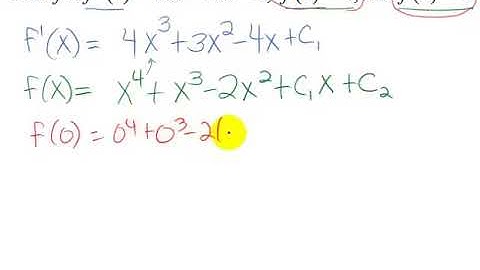 f'(x) = 4x³+3x²-4x+C₁
f(x)= x⁴+x³-2x²+C₁x+C₂
f(0) = 0⁴+0³-2(